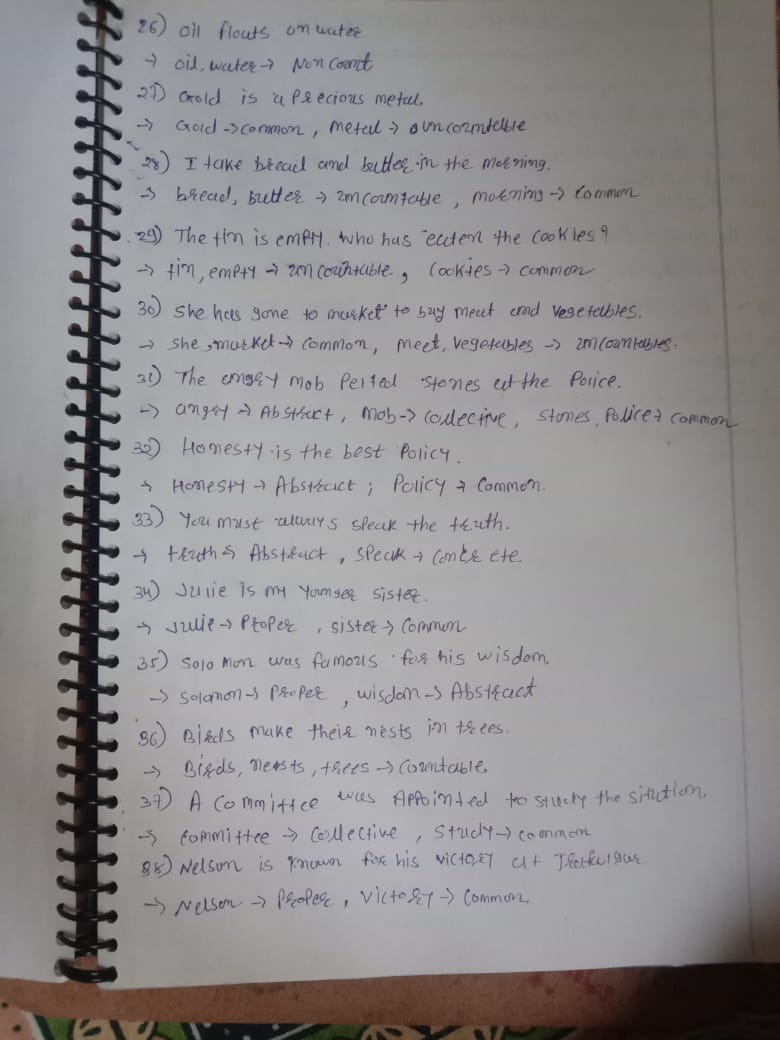 26) Oil floats on water
→ oil, water → Non Count
27) Gold is a Precious metal.
→ Gold → common, metal → uncountable
28) I take bread and butter in the morning.
→ bread, butter → uncountable, morning → common
29) The tin is empty. Who has eaten the cookies?
→ tin, empty → uncountable, cookies → common
30) She has gone to market to buy meat and vegetables.
→ she, market → common, meet, vegetables → uncountables.
31) The angry mob Pelted stones at the Police.
→ angry → Abstract, Mob → collective, stones, Police → common
32) Honesty is the best Policy.
→ Honesty → Abstract; Policy → Common.
33) You must always speak the truth.
→ truth → Abstract, speak → Concrete.
34) Julie is my younger sister.
→ Julie → Proper, sister → Common
35) Solo mon was famous for his wisdom.
→ Solomon → Proper, wisdom → Abstract
36) Birds make their nests in trees.
→ Birds, nests, trees → Countable
37) A Committee was Appointed to study the sitution
→ Committee → Collective, Study → common
38) Nelson is known for his victory at
→ Nelson → Proper, Victory → Common.